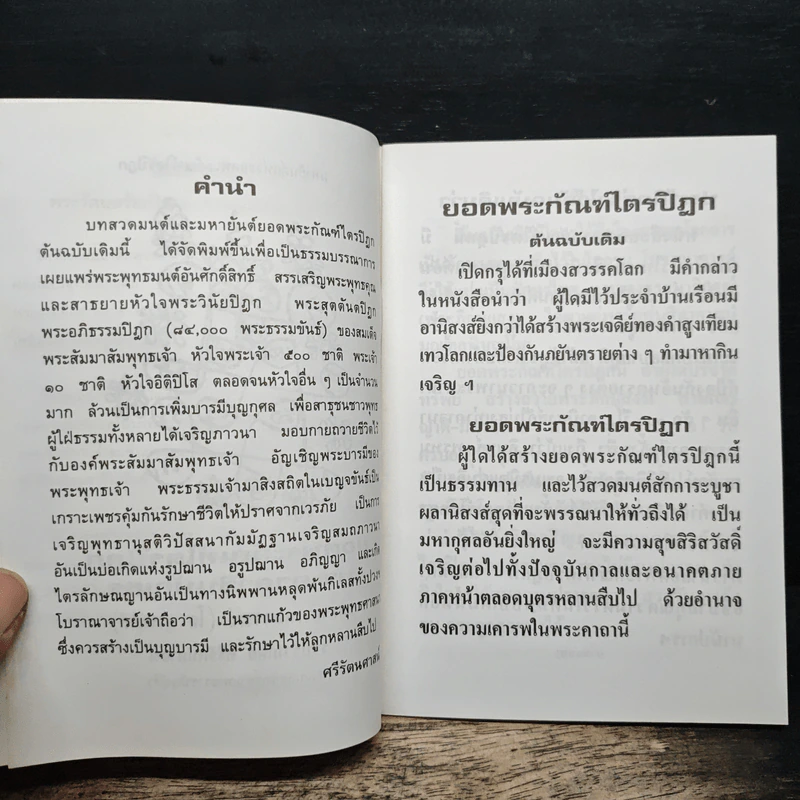 คำนำ
บทสวดมนต์และมหายันต์ยอดพระกัณฑ์ไตรปิฎก
ต้นฉบับเดิมนี้ ได้จัดพิมพ์ขึ้นเพื่อเป็นธรรมบรรณาการ
เผยแพร่พระพุทธมนต์อันศักดิ์สิทธิ์ สรรเสริญพระพุทธคุณ
และสาธยายหัวใจพระวินัยปิฎก พระสุตตันตปิฎก
พระอภิธรรมปิฎก (๘๔,๐๐๐ พระธรรมขันธ์) ของสมเด็จ
พระสัมมาสัมพุทธเจ้า หัวใจพระเจ้า ๕๐๐ ชาติ พระเจ้า
๑๐ ชาติ หัวใจอิติปิโส ตลอดจนหัวใจอื่น ๆ เป็นจำนวน
มาก ล้วนเป็นการเพิ่มบารมีบุญกุศล เพื่อสาธุชนชาวพุทธ
ผู้ใฝ่ธรรมทั้งหลายได้เจริญภาวนา มอบกายถวายชีวิตไว้
กับองค์พระสัมมาสัมพุทธเจ้า อัญเชิญพระบารมีของ
พระพุทธเจ้า พระธรรมเจ้ามาสิงสถิตในเบญจขันธ์เป็น
เกราะเพชรคุ้มกันรักษาชีวิตให้ปราศจากเวรภัย เป็นการ
เจริญพุทธานุสติวิปัสสนากัมมัฏฐานเจริญสมถภาวนา
อันเป็นบ่อเกิดแห่งรูปฌาน อรูปฌาน อภิญญา และเกิด
ไตรลักษณญานอันเป็นทางนิพพานหลุดพ้นกิเลสทั้งปวง
โบราณาจารย์เจ้าถือว่า เป็นรากแก้วของพระพุทธศาสนา
ซึ่งควรสร้างเป็นบุญบารมี และรักษาไว้ให้ลูกหลานสืบไป
ศรีรัตนศาสน์
ยอดพระกัณฑ์ไตรปิฎก
ต้นฉบับเดิม
เปิดกรุได้ที่เมืองสวรรคโลก มีคำกล่าว
ในหนังสือนำว่า ผู้ใดมีไว้ประจำบ้านเรือนมี
อานิสงส์ยิ่งกว่าได้สร้างพระเจดีย์ทองคำสูงเทียม
เทวโลกและป้องกันภยันตรายต่าง ๆ ทำมาหากิน
เจริญ ฯ
ยอดพระกัณฑ์ไตรปิฎก
ผู้ใดได้สร้างยอดพระกัณฑ์ไตรปิฎกนี้
เป็นธรรมทาน และไว้สวดมนต์สักการะบูชา
ผลานิสงส์สุดที่จะพรรณนาให้ทั่วถึงได้ เป็น
มหากุศลอันยิ่งใหญ่ จะมีความสุขสิริสวัสดิ์
เจริญต่อไปทั้งปัจจุบันกาลและอนาคตภาย
ภาคหน้าตลอดบุตรหลานสืบไป ด้วยอำนาจ
ของความเคารพในพระคาถานี้